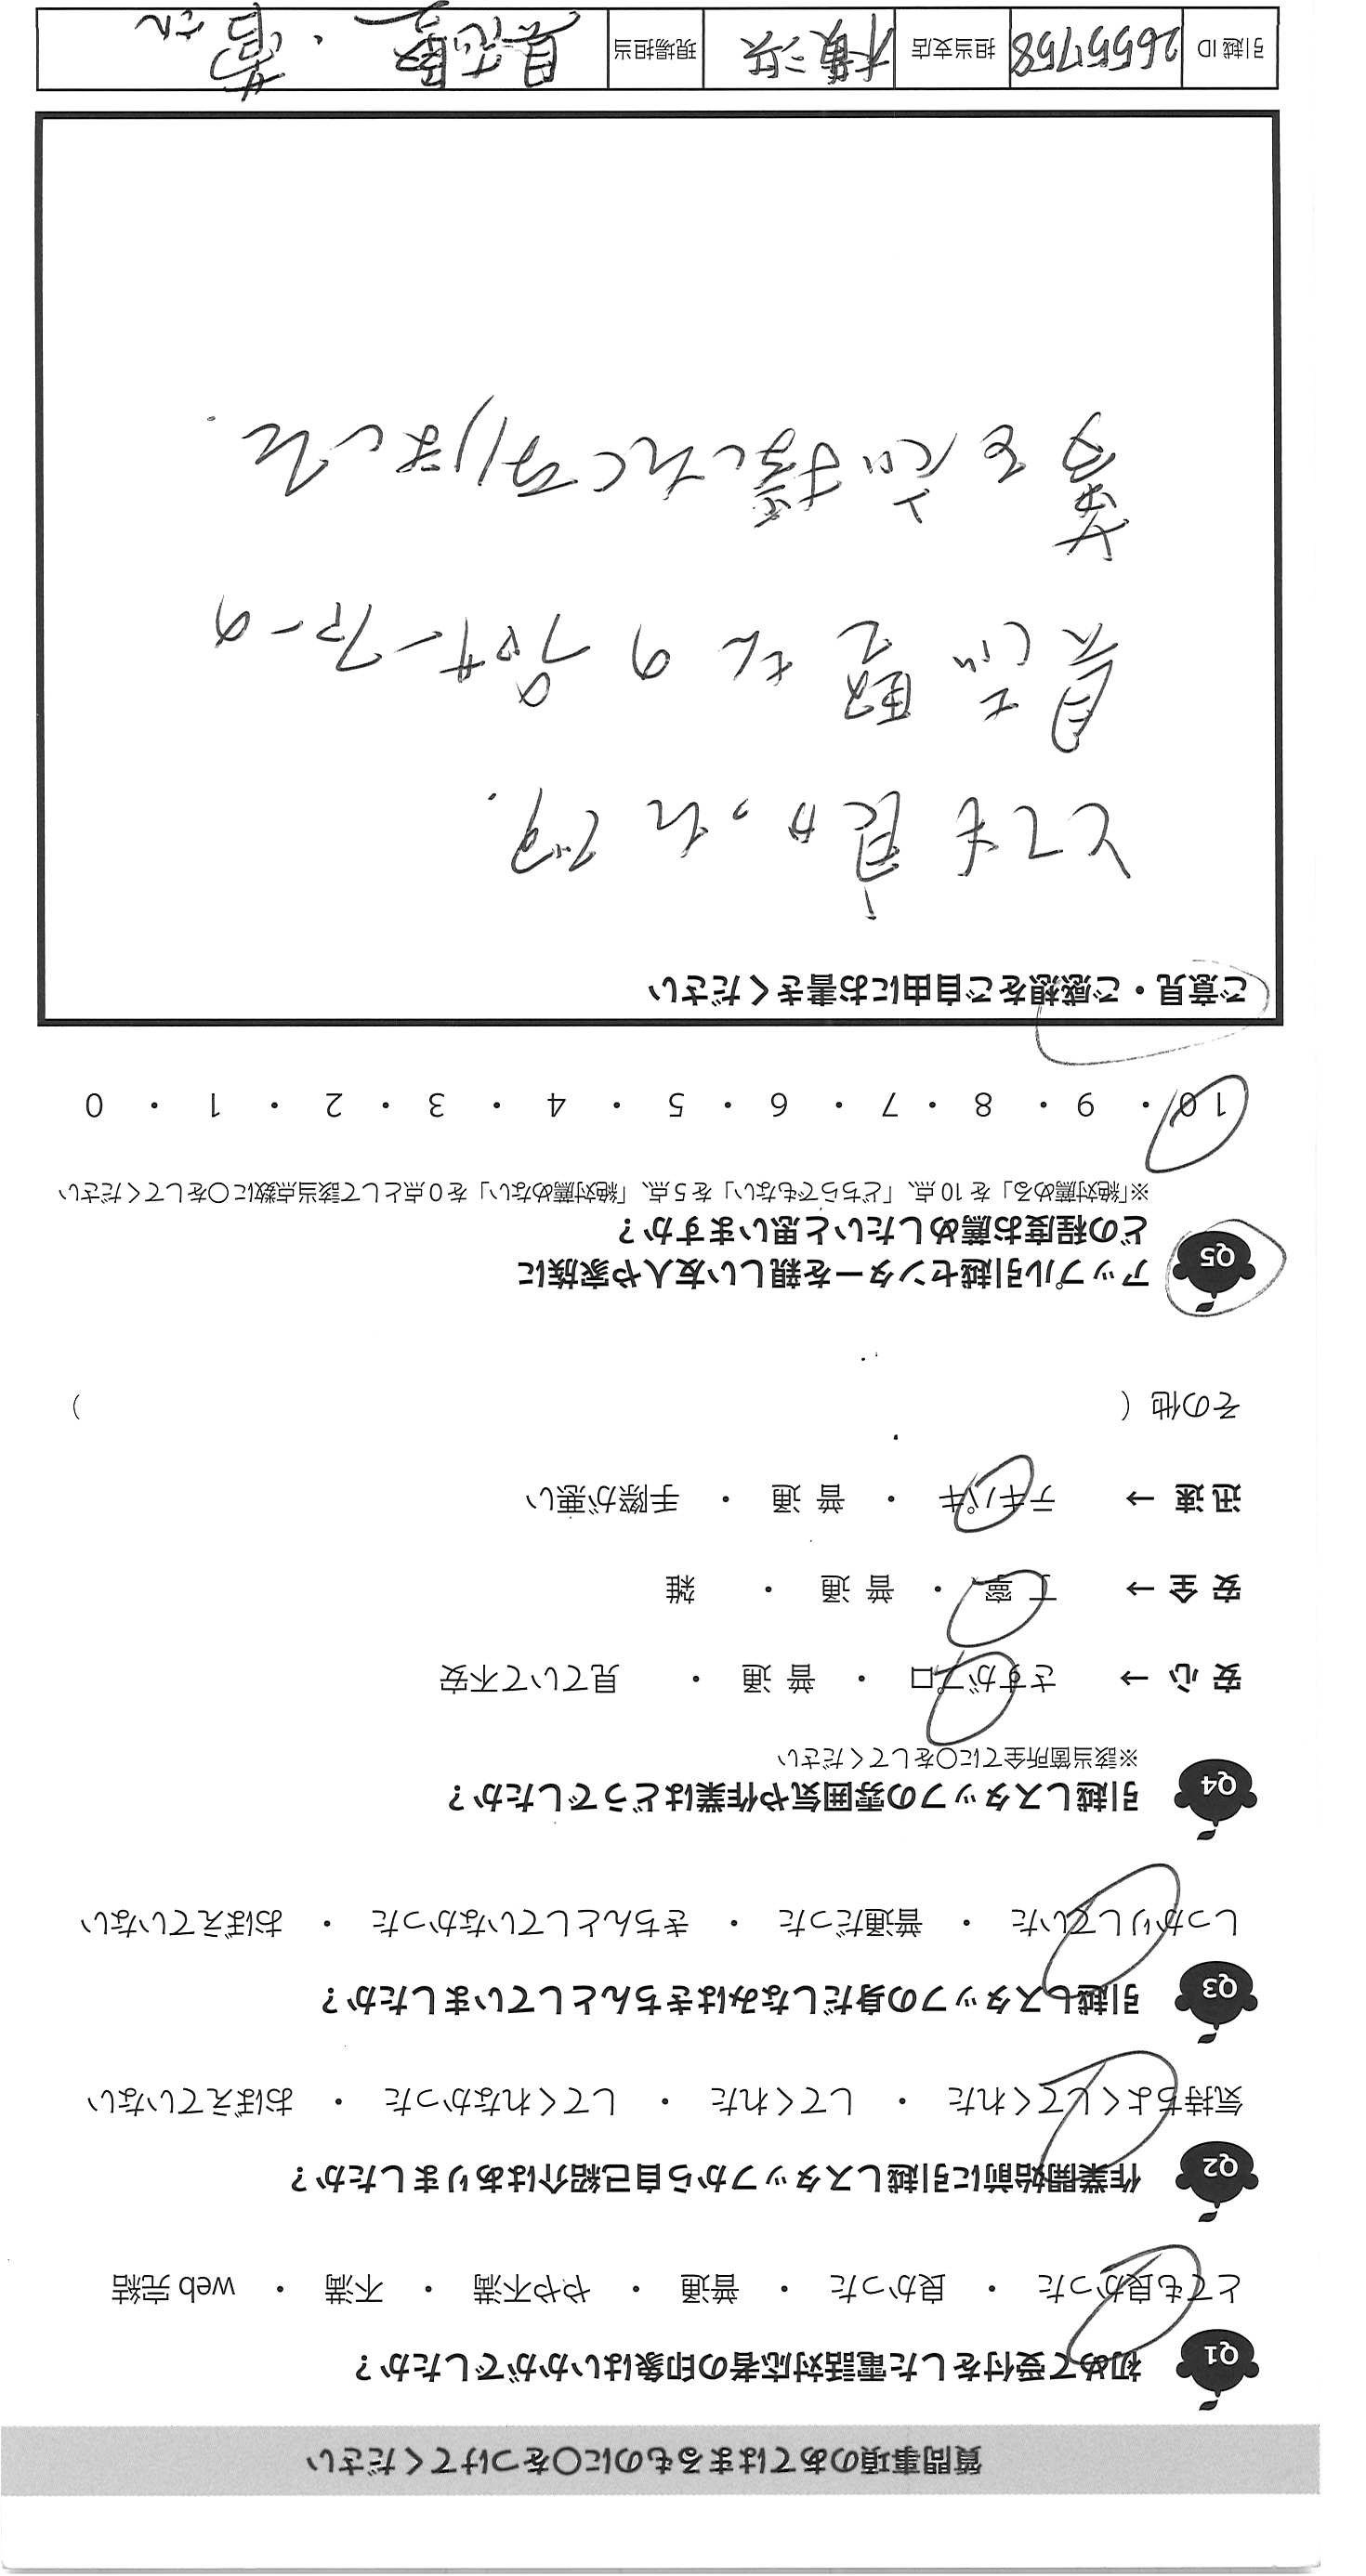 質問事項のあてはまるものに〇をつけてください
Q1 初めて受付をした電話対応者の印象はいかがでしたか？
とても良かった ・ 良かった ・ 普通 ・ やや不満 ・ 不満 ・ web完結
Q2 作業開始前に引越しスタッフから自己紹介はありましたか？
気持ちよくしてくれた ・ してくれた ・ してくれなかった ・ おぼえていない
Q3 引越しスタッフの身だしなみはきちんとしていましたか？
しっかりしていた ・ 普通だった ・ きちんとしていなかった ・ おぼえていない
Q4 引越しスタッフの雰囲気や作業はどうでしたか？
※該当箇所全てに〇をしてください
安心 → さすがプロ ・ 普通 ・ 見ていて不安
安全 → 丁寧 ・ 普通 ・ 雑
迅速 → テキパキ ・ 普通 ・ 手際が悪い
その他（ ）
Q5 アップル引越センターを親しい友人や家族に
どの程度お薦めしたいと思いますか？
※「絶対薦める」を10点、「どちらでもない」を5点、「絶対薦めない」を0点として該当点数に〇をしてください
10 ・ 9 ・ 8 ・ 7 ・ 6 ・ 5 ・ 4 ・ 3 ・ 2 ・ 1 ・ 0
ご意見・ご感想をご自由にお書きください
とても良かったです.
さんの
ました.
引越ID 2655758 担当支店 横浜 現場担当